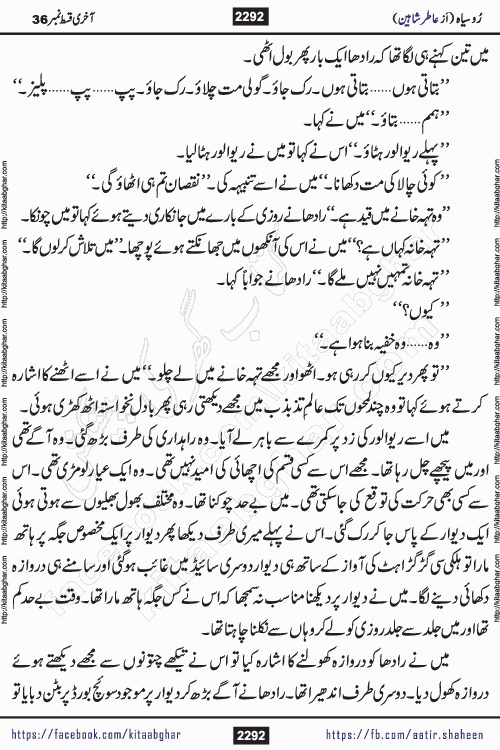 رُوسیاہ (از عاطر شاہین) 2292 آخری قسط نمبر 36
میں تین کہنے ہی لگا تھا کہ رادھا ایک بار پھر بول اٹھی۔
’’بتاتی ہوں...... بتاتی ہوں۔ رک جاؤ۔ گولی مت چلاؤ۔ رک جاؤ۔ پپ...... پپ...... پلیز۔‘‘
’’ہمم...... بتاؤ۔‘‘ میں نے کہا۔
’’پہلے ریوالور ہٹاؤ۔‘‘ اس نے کہا تو میں نے ریوالور ہٹا لیا۔
’’کوئی چالاکی مت دکھانا۔‘‘ میں نے اسے تنبیہہ کی۔ ’’نقصان تم ہی اٹھاؤ گی۔‘‘
’’وہ تہہ خانے میں قید ہے۔‘‘ رادھا نے روزی کے بارے میں جانکاری دیتے ہوئے کہا تو میں چونکا۔
’’تہہ خانہ کہاں ہے؟‘‘ میں نے اس کی آنکھوں میں جھانکتے ہوئے پوچھا۔ ’’میں تلاش کر لوں گا۔‘‘
’’تہہ خانہ تمہیں نہیں ملے گا۔‘‘ رادھا نے جواباً کہا۔
’’کیوں؟‘‘
’’وہ...... وہ خفیہ بنا ہوا ہے۔‘‘
’’تو پھر دیر کیوں کر رہی ہو۔ اٹھو اور مجھے تہہ خانے میں لے چلو۔‘‘ میں نے اسے اٹھنے کا اشارہ
کرتے ہوئے کہا تو وہ چند لمحوں تک عالمِ تذبذب میں مجھے دیکھتی رہی پھر بادل نخواستہ اٹھ کھڑی ہوئی۔
میں اسے ریوالور کی زد پر کمرے سے باہر لے آیا۔ وہ راہداری کی طرف بڑھ گئی۔ وہ آگے تھی
اور میں پیچھے چل رہا تھا۔ مجھے اس سے کسی قسم کی اچھائی کی امید نہیں تھی۔ وہ ایک عیار لومڑی تھی۔ اس
سے کسی بھی حرکت کی توقع کی جا سکتی تھی۔ میں بے حد چوکنا تھا۔ وہ مختلف بھول بھلیوں سے ہوتی ہوئی
ایک دیوار کے پاس جا کر رک گئی۔ اس نے پہلے میری طرف دیکھا پھر دیوار پر ایک مخصوص جگہ پر ہاتھ
مارا تو ہلکی سی گڑگڑاہٹ کی آواز کے ساتھ ہی دیوار دوسری سائیڈ میں غائب ہو گئی اور سامنے ہی دروازہ
دکھائی دینے لگا۔ میں نے دیوار پر دیکھنا مناسب نہ سمجھا کہ اس نے کس جگہ ہاتھ مارا تھا۔ وقت بے حد کم
تھا اور میں جلد سے جلد روزی کو لے کر وہاں سے نکلنا چاہتا تھا۔
میں نے رادھا کو دروازہ کھولنے کا اشارہ کیا تو اس نے تیکھے چتونوں سے مجھے دیکھتے ہوئے
دروازہ کھول دیا۔ دوسری طرف اندھیرا تھا۔ رادھا نے آگے بڑھ کر دیوار پر موجود سوئچ بورڈ پر بٹن دبایا تو
https://facebook.com/kitaabghar 2292 https://fb.com/aatir.shaheen
http://kitaabghar.com http://kitaabghar.com http://kitaabghar.com